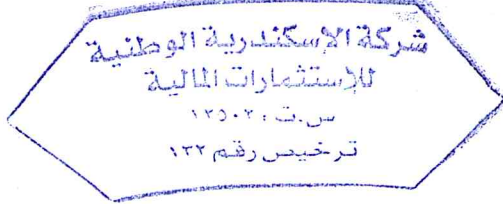 شركة الإسكندرية الوطنية
للإستثمارات المالية
س.ت : ١٣٥٠٢
ترخيص رقم ١٣٢